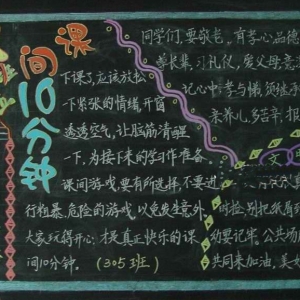 课间10分钟
下课了,应该放松
一下紧张的情绪,开窗
透透空气,让脑筋清醒
一下,为接下来的学习作准备。
课间游戏要有所选择,不要进
行粗暴、危险的游戏,以免发生意外.
大家玩得开心,才是真正快乐的课
间10分钟。(305班)
同学们,要敬老,有孝心,品德
尊长辈,习礼仪,爱父母,意
记心中,孝与
来养儿,多苦辛,报
文
时捡,别把纸屑
幼要记牢,公共场
共同来加油,美